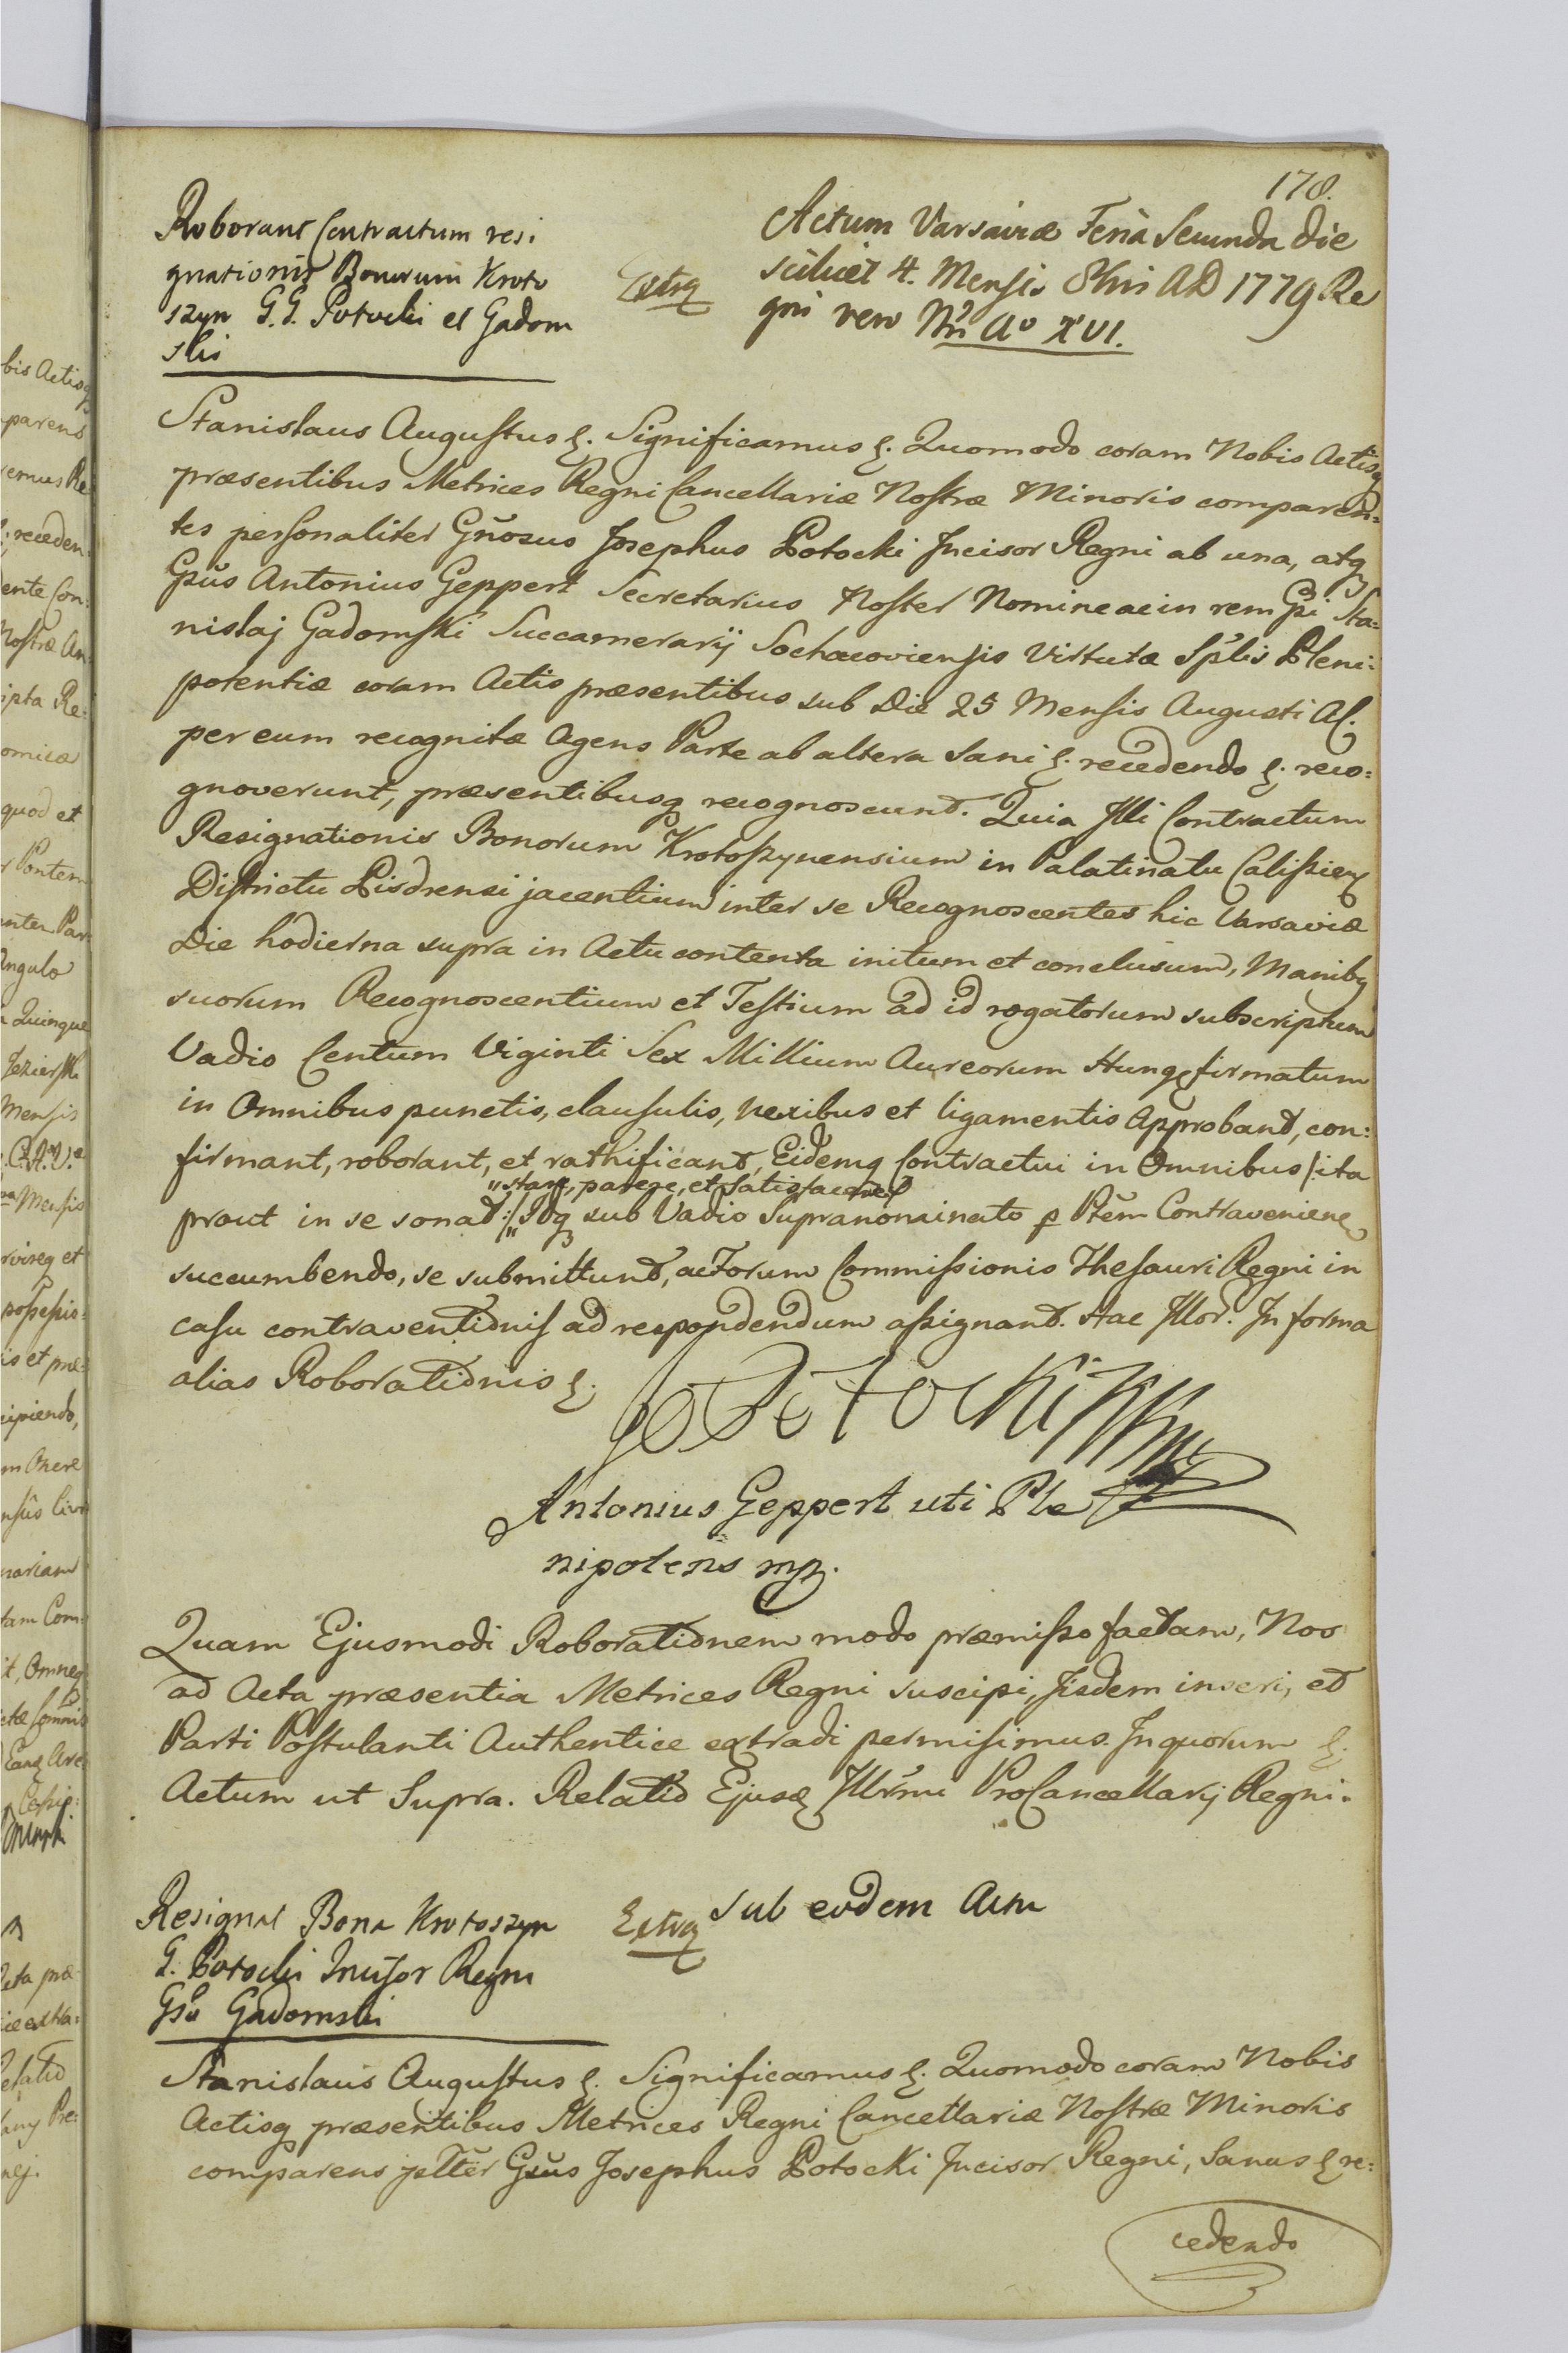 178.
Roborant Contractum resi
gnationis Bonorum Kroto
szyn G. G. Potocki et Gadom
ski
Extrq
Actum Varsaviæ Feria Secunda die
scilicet 4. Mensis 8bris AD 1779 Re
gni vero Nri Ao XVI.
Stanislaus Augustus &. Significamus &. Quomodo coram Nobis Actisq
præsentibus Metrices Regni Cancellariæ Nostræ Minoris comparen=
tes personaliter Gnosus Josephus Potocki Incisor Regni ab una, atq
Gsus Antonius Geppert Secretarius Noster Nomine ac in rem Gsi Sta=
nislaj Gadomski Succamerarij Sochacoviensis Virtute Splis Pleni=
potentiæ coram Actis præsentibus sub Die 25 Mensis Augusti A C.
per eum recognitæ Agens Parte ab altera Sani &. recedendo &. reco=
gnoverunt, præsentibusq recognoscunt. Quia Illi Contractum
Resignationis Bonorum Krotoszynensium in Palatinatu Calissien
Districtu Pisdrensi jacentium inter se Recognoscentes hic Varsaviæ
Die hodierna supra in Actu contenta initum et conclusum, Manibq
suorum Recognoscentium et Testium ad id rogatorum subscriptum
Vadio Centum Viginti Sex Millium Aureorum Hung firmatum
in Omnibus punctis, clausulis, nexibus et ligamentis Approbant, con=
firmant, roborant, et rathificant, Eidemq Contractui in Omnibus /: ita
"stare, parere, et Satisfacere
prout in se sonat :/" Idq sub Vadio Supranominato p Ptem Contravenien
succumbendo, se submittunt, ac Forum Commissionis Thesauri Regni in
casu contraventionis ad respondendum assignant. Hac Illor. In forma
alias Roborationis &.
Jo Potocki KKmp
Antonius Geppert uti Ple
nipotens mp.
Quam Ejusmodi Roborationem modo præmisso factam, Nos
ad Acta præsentia Metrices Regni suscipi, Iisdem inseri, et
Parti Postulanti Authentice extradi permisimus. In quorum &.
Actum ut Supra. Relatio Ejusd Illrmi ProCancellarij Regni.
Resignat Bona Krotoszyn
G. Potocki Incisor Regni
Gso Gadomski
Extrq
Sub eodem Actu
Stanislaus Augustus &. Significamus &. Quomodo coram Nobis
Actisq præsentibus Metrices Regni Cancellariæ Nostræ Minoris
comparens psltter Gsus Josephus Potocki Incisor Regni, Sanus & re=
cedendo